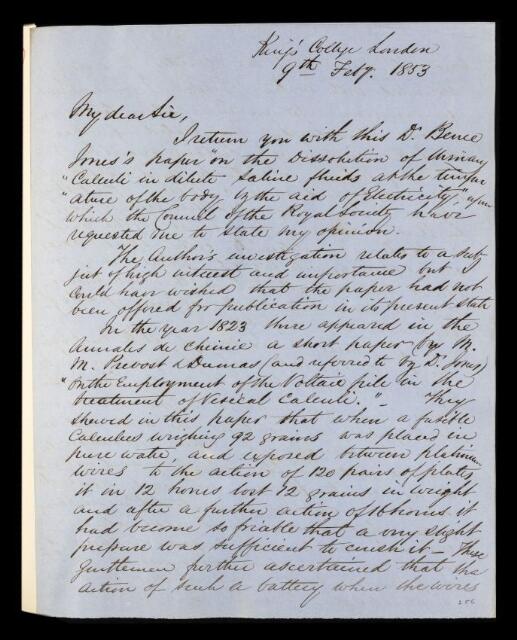 King's College London
9th Feby. 1853
My dear Sir,
I return you with this Dr. Bence
Jones's paper "on the Dissolution of Urinary
"Calculi in dilute saline fluids at the temper
"ature of the body by the aid of Electricity," upon
which the Council of the Royal Society have
requested me to state my opinion.
The Author's investigation relates to a sub
ject of high interest and importance but I
could have wished that the paper had not
been offered for publication in its present state
In the year 1823 there appeared in the
Annales de Chimie a short paper by M.
M. Prevost & Dumas (and referred to by Dr. Jones)
"On the Employment of the Voltaic pile in the
treatment of Vesical Calculi." - They
shewed in this paper that when a fusible
Calculus weighing 92 grains was placed in
pure water, and exposed between platinum
wires to the action of 120 pairs of plates,
it in 12 hours lost 12 grains in weight
and after a further action of 16 hours it
had become so friable that a very slight
pressure was sufficient to crush it - These
Gentlemen further ascertained that the
action of such a battery when the wires
256